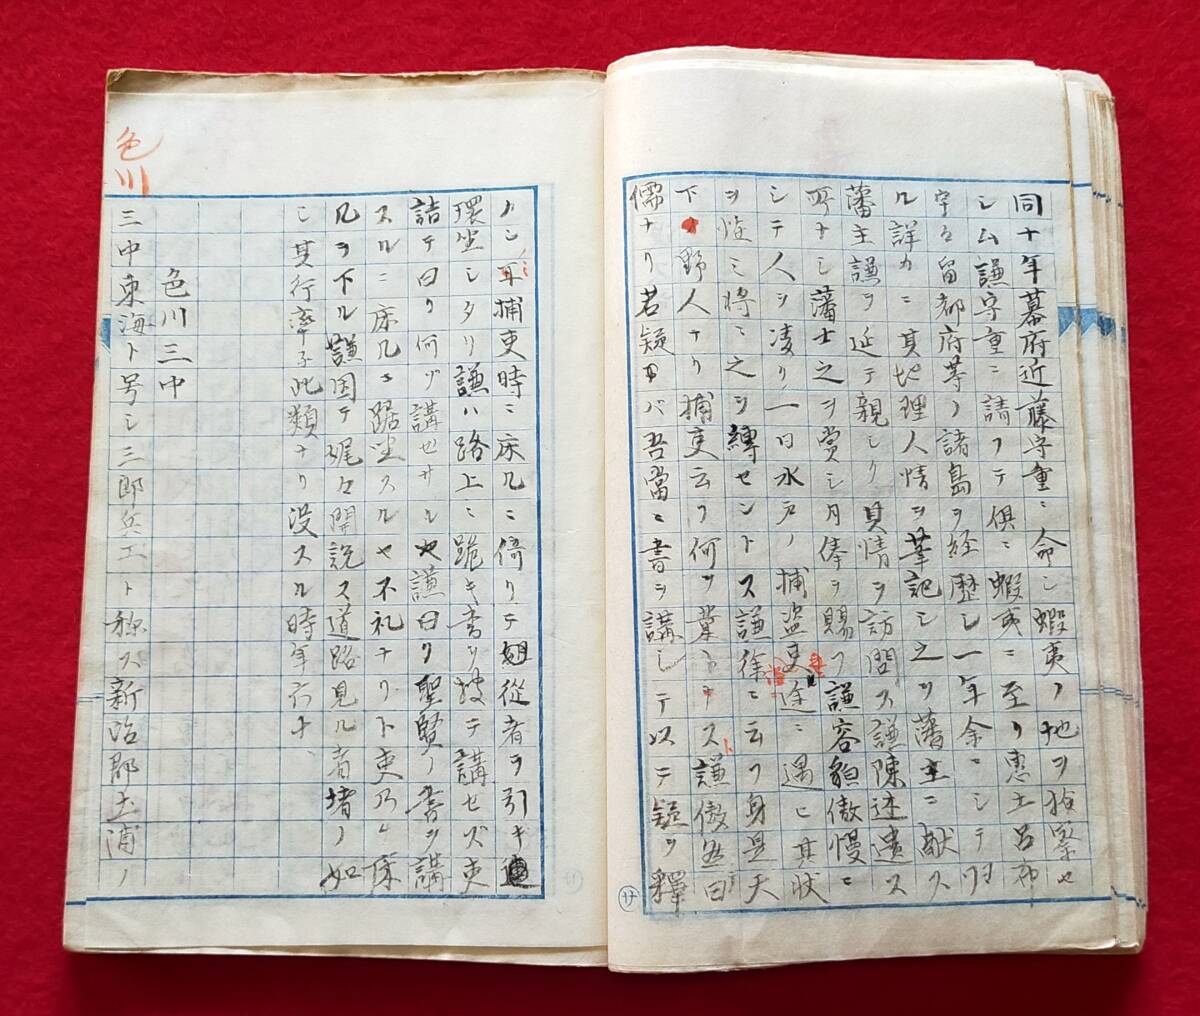 同十年幕府近藤守重ニ命シ蝦夷ノ地ヲ按察セ
シム謙守重ニ請フテ俱ニ蝦夷ニ至リ恵土呂布
宇留都府等ノ諸島ヲ経歴シ一年余ニシテ归
ル詳カニ其地理人情ヲ筆記シ之ヲ藩主ニ献ス
藩主謙ヲ延テ親シク其情ヲ訪問ス謙陳述遺ス
所ナシ藩士之ヲ賞シ月俸ヲ賜フ謙容貌傲慢ニ
シテ人ヲ凌リ一日水戸ノ捕盗吏途ニ遇ヒ其状
ヲ怪ミ将ニ之ヲ縛セントス謙徐ニ云フ身是天
下ノ野人ナリ捕吏云フ何ヲ業トナス謙傲然曰
儒ナリ若疑ハバ吾當ニ書ヲ講シテ以テ疑ヲ釋
ノシ耳捕吏時ニ床几ニ倚リテ従者ヲ引キ
環坐シタリ謙ハ路上ニ跪キ書リ披テ講セズ吏
詰テ曰ク何ゾ講セサルヤ謙曰ク聖賢ノ書ヲ講
スルニ床几ニ踞坐スルヤ不礼ナリト吏乃レ床
几ヲ下ル謙因テ娓々開説ス道路見ル者堵ノ如
シ其行率子此類ナリ没スル時年六十、
色川三中
三中東海ト号シ三郎兵エト称ス新治郡土浦ノ
色川